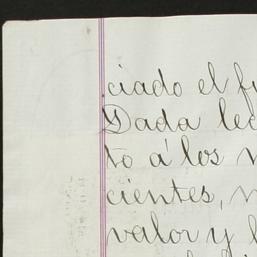 ciado el
Dada
to á los
cientes,
valor y